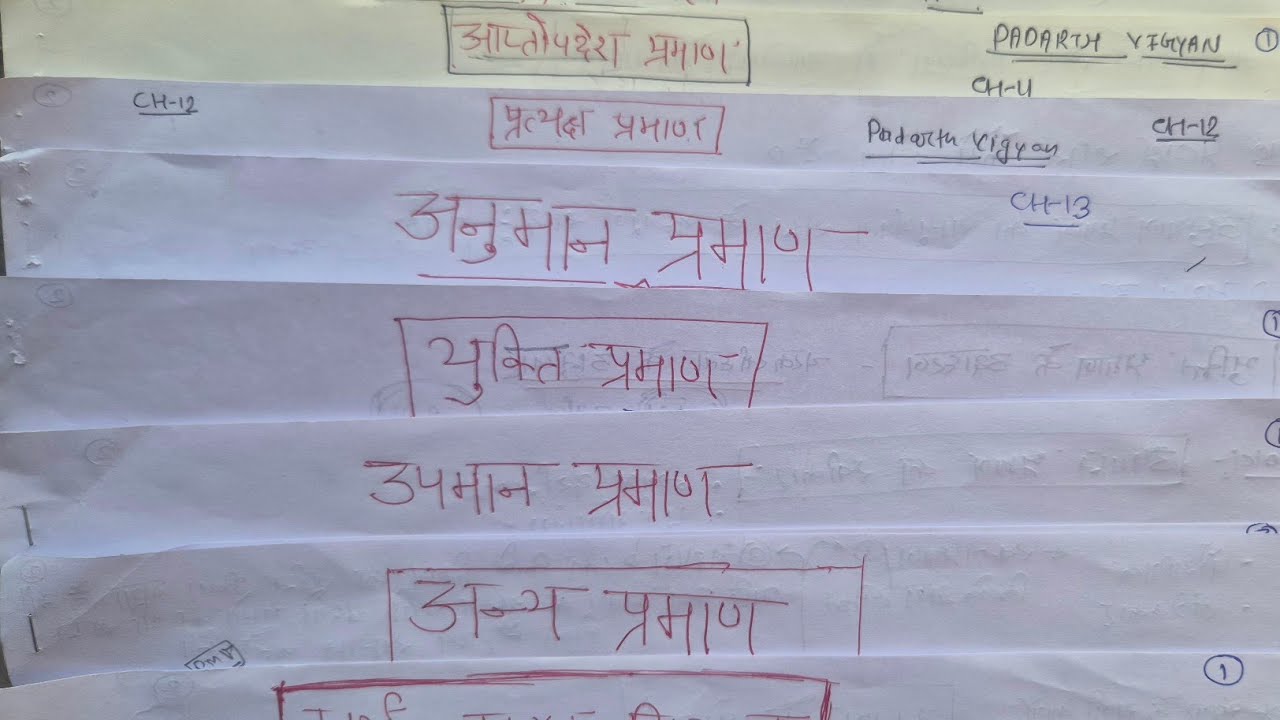 आप्तोपदेश प्रमाण PADARTH VIGYAN 1
CH-11
CH-12 प्रत्यक्ष प्रमाण Padarth Vigyan CH-12
अनुमान प्रमाण CH-13
युक्ति प्रमाण 1
उपमान प्रमाण
अन्य प्रमाण
1